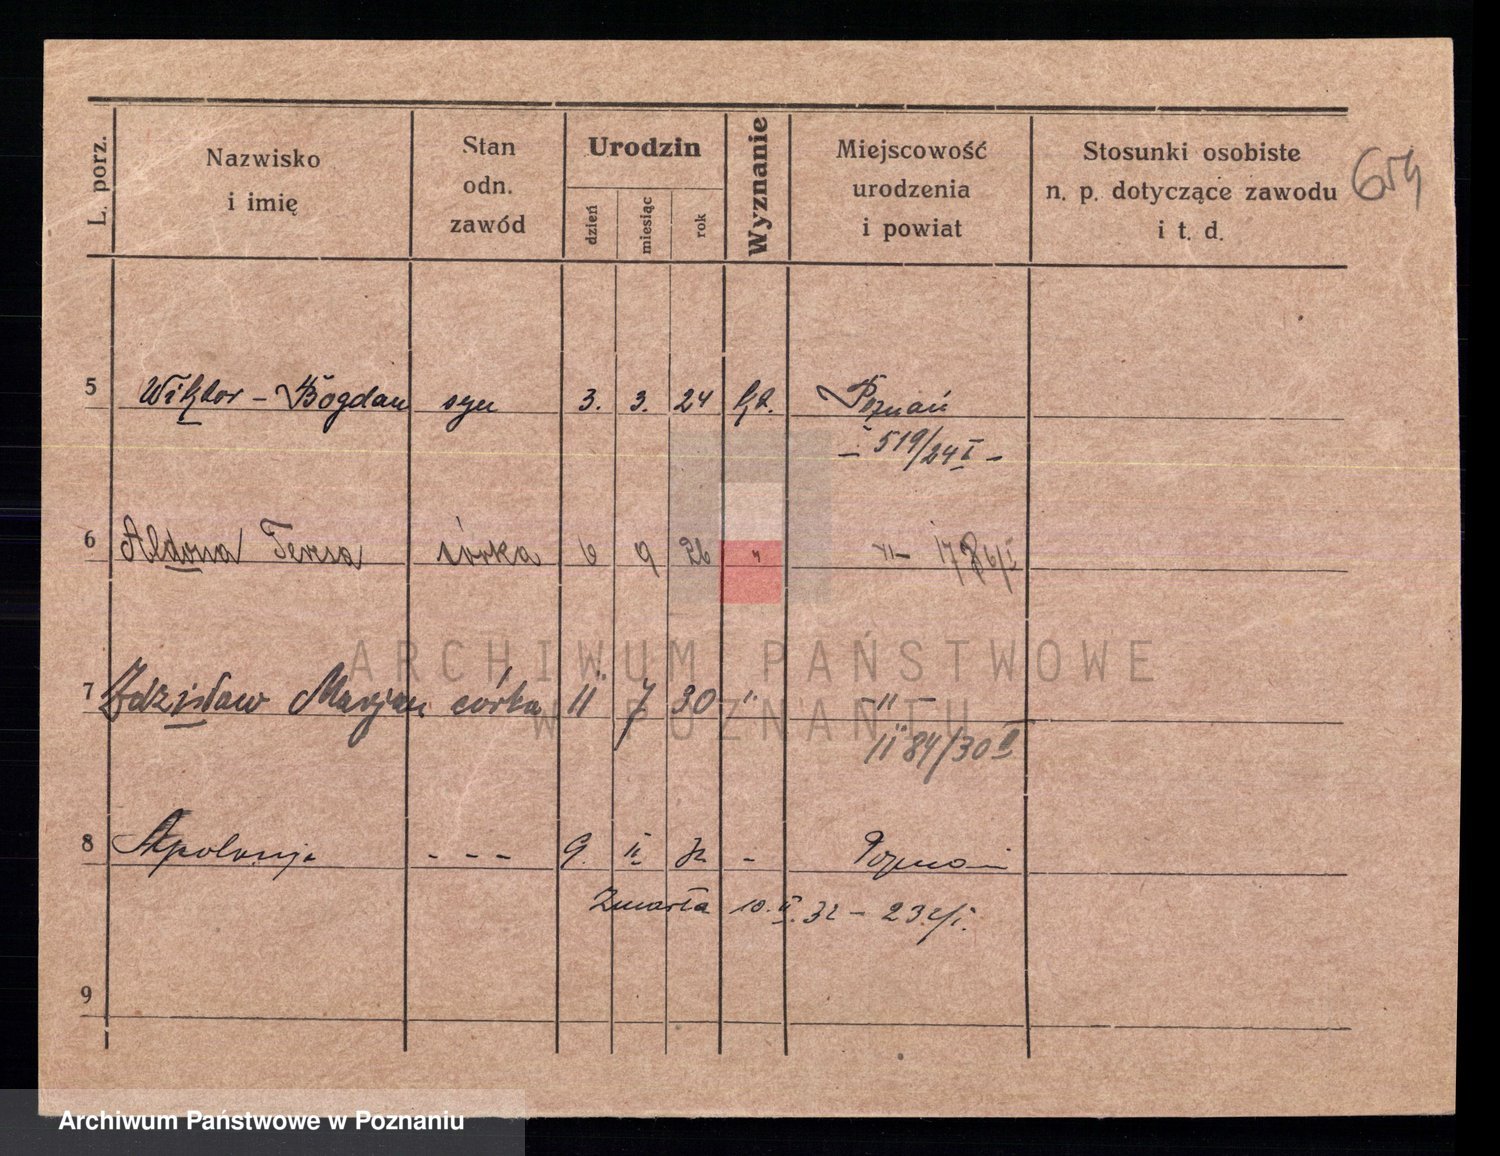 L. porz.
Nazwisko
i imię
Stan
odn.
zawód
Urodzin
dzień
miesiąc
rok
Wyznanie
Miejscowość
urodzenia
i powiat
Stosunki osobiste
n. p. dotyczące zawodu
i t. d.
654
5 Wiktor - Bogdan syn 3. 3. 24 kat. Poznań
- 519/24 I -
6 Aldona Teresa córka 6 9 26 " -"-
7 Zdzisław Marjan córka 11 7 30 " -"-
1184/30 II
8 Apolonja - - - 9. II 32 - Poznań
Zmarła 10. II. 32 - 232/I.
9
ARCHIWUM PAŃSTWOWE
W POZNANIU
Archiwum Państwowe w Poznaniu